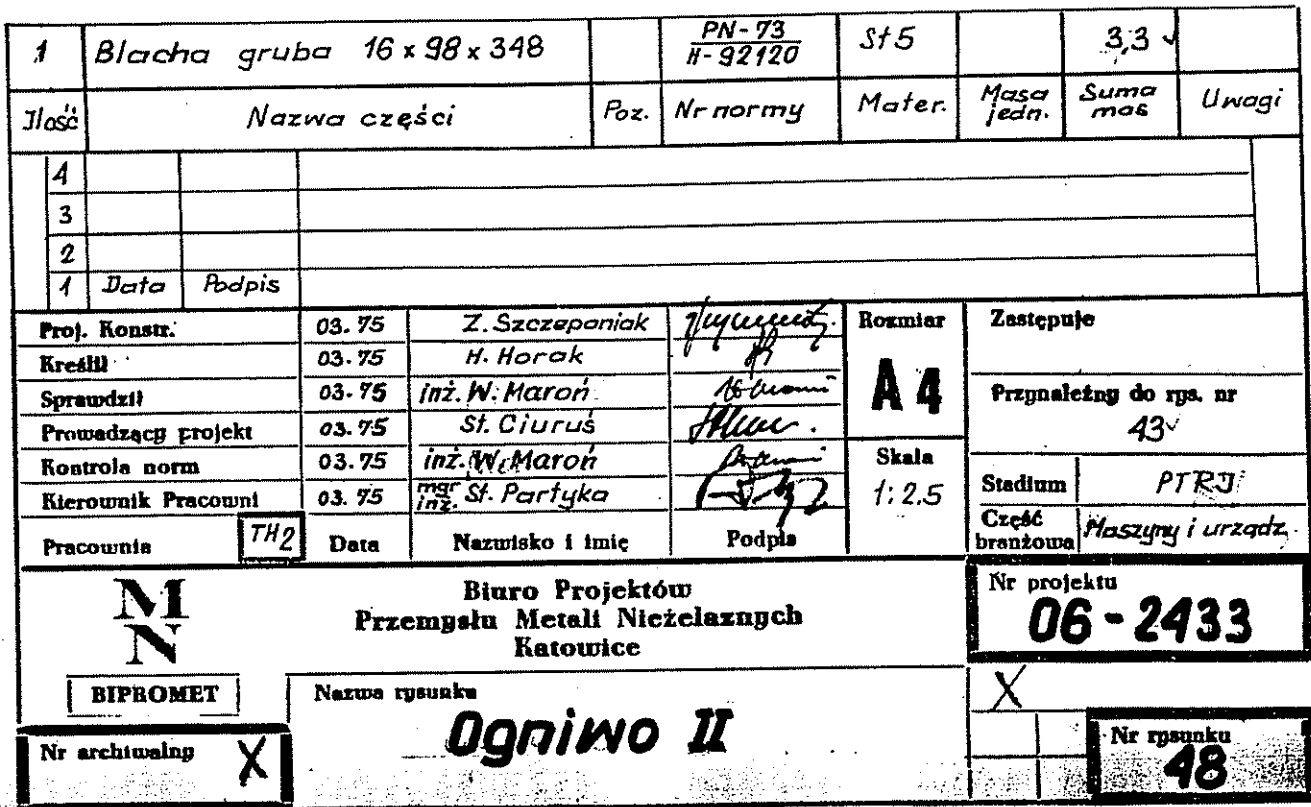 1 Blacha gruba 16 x 98 x 348 PN-73 St5 3,3
H-92120
Ilość Nazwa części Poz. Nr normy Mater. Masa jedn. Suma mas Uwagi
4
3
2
1 Data Podpis
Proj. Konstr. 03.75 Z. Szczepaniak
Kreślił 03.75 H. Horak
Sprawdził 03.75 inż. W. Maroń
Prowadzący projekt 03.75 St. Ciuruś
Kontrola norm 03.75 inż. W. Maroń
Kierownik Pracowni 03.75 mgr inż. St. Partyka
Pracownia TH2 Data Nazwisko i imię Podpis
Rozmiar
A4
Skala
1:2.5
Zastępuje
Przynależny do rys. nr
43
Stadium PTRJ
Część branżowa Maszyny i urządz.
MN
BIPROMET
Biuro Projektów
Przemysłu Metali Nieżelaznych
Katowice
Nr projektu
06-2433
Nr archiwalny X
Nazwa rysunku
Ogniwo II
X
Nr rysunku
48